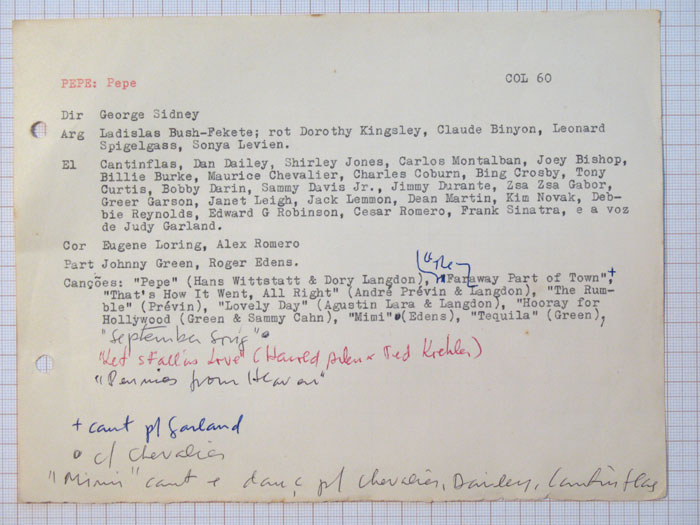 PEPE: Pepe
COL 60
Dir George Sidney
Arg Ladislas Bush-Fekete; rot Dorothy Kingsley, Claude Binyon, Leonard
Spigelgass, Sonya Levien.
El Cantinflas, Dan Dailey, Shirley Jones, Carlos Montalban, Joey Bishop,
Billie Burke, Maurice Chevalier, Charles Coburn, Bing Crosby, Tony
Curtis, Bobby Darin, Sammy Davis Jr., Jimmy Durante, Zsa Zsa Gabor,
Greer Garson, Janet Leigh, Jack Lemmon, Dean Martin, Kim Novak, Deb-
bie Reynolds, Edward G Robinson, Cesar Romero, Frank Sinatra, e a voz
de Judy Garland.
Cor Eugene Loring, Alex Romero
Part Johnny Green, Roger Edens.
"The
Canções: "Pepe" (Hans Wittstatt & Dory Langdon), "Faraway Part of Town",+
"That's How It Went, All Right" (André Prévin & Langdon), "The Rum-
ble" (Prévin), "Lovely Day" (Agustin Lara & Langdon), "Hooray for
Hollywood (Green & Sammy Cahn), "Mimi" (Edens), "Tequila" (Green),
"September Song"
"Let's Fall in Love" (Harold Arlen & Ted Koehler)
"Pennies from Heaven"
+ cant p/ Garland
• c/ Chevalier
"Mimi" cant e danç p/ Chevalier, Dailey, Cantinflas